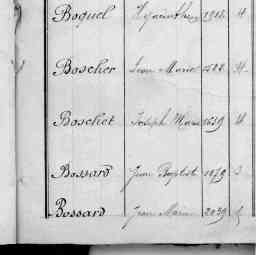 Boquel Hyacinthe
Boscher Jean Marie
Boschet Joseph Marie 1639
Bossard Jean Baptiste 1879
Bossard Jean Marie 2039